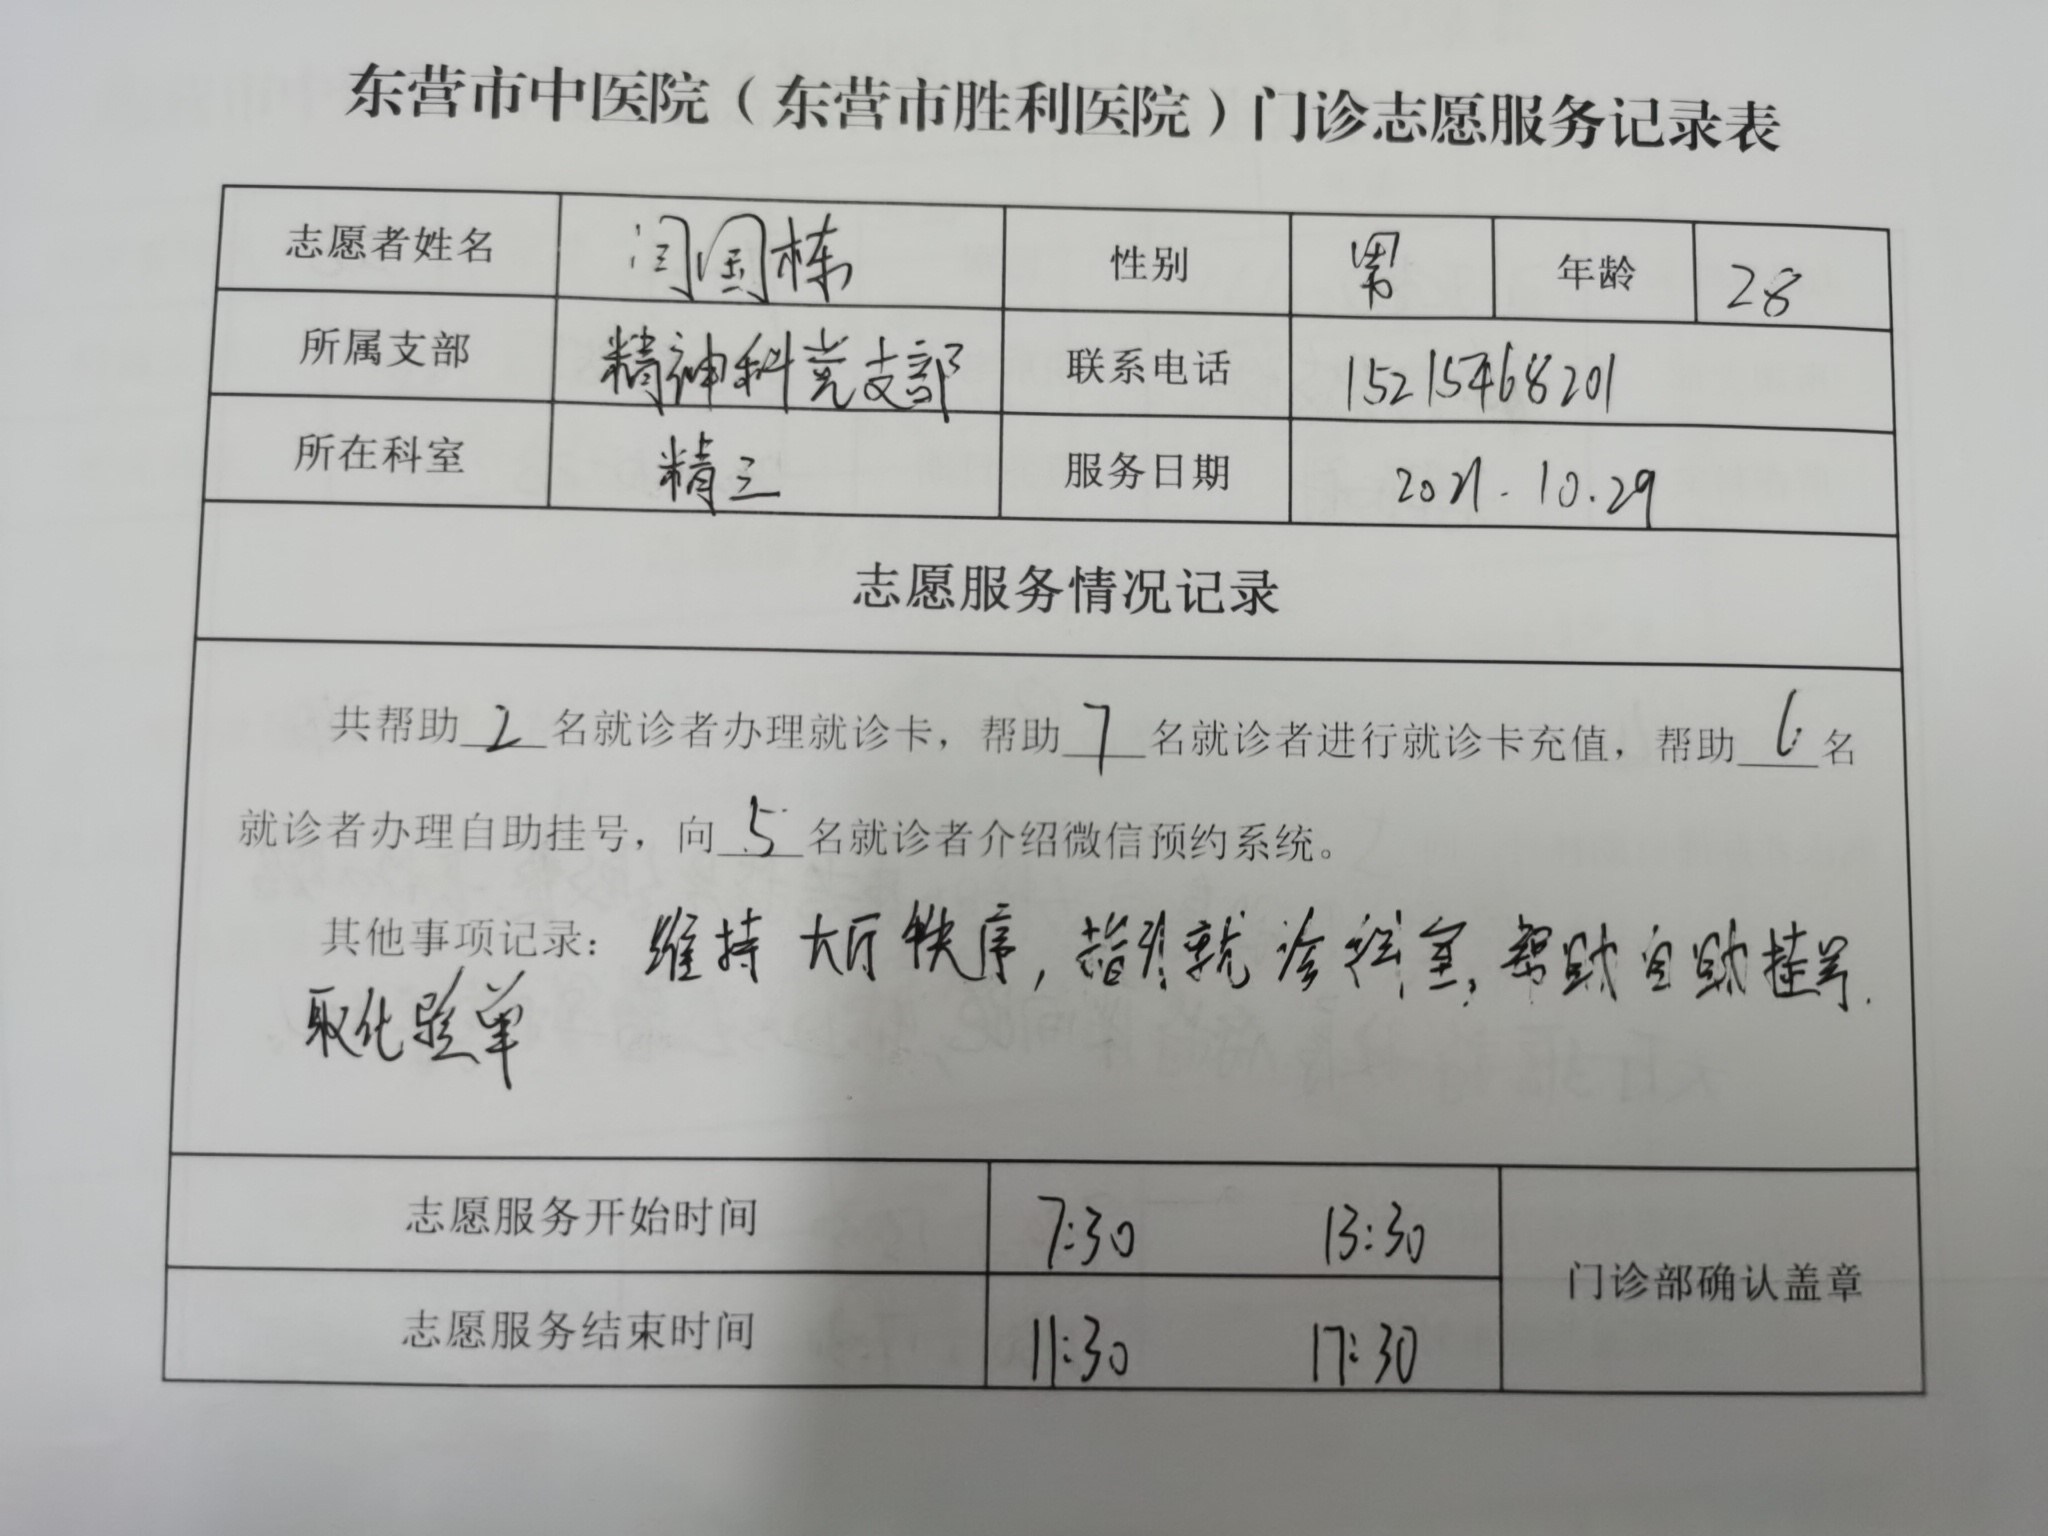 东营市中医院（东营市胜利医院）门诊志愿服务记录表
志愿者姓名 闫国栋 性别 男 年龄 28
所属支部 精神科党支部 联系电话 15215468201
所在科室 精三 服务日期 2021.10.29
志愿服务情况记录
共帮助 2 名就诊者办理就诊卡，帮助 7 名就诊者进行就诊卡充值，帮助 6 名
就诊者办理自助挂号，向 5 名就诊者介绍微信预约系统。
其他事项记录：维持大厅秩序，指引就诊科室，帮助自助挂号.
取化验单
志愿服务开始时间 7:30 13:30
门诊部确认盖章
志愿服务结束时间 11:30 17:30